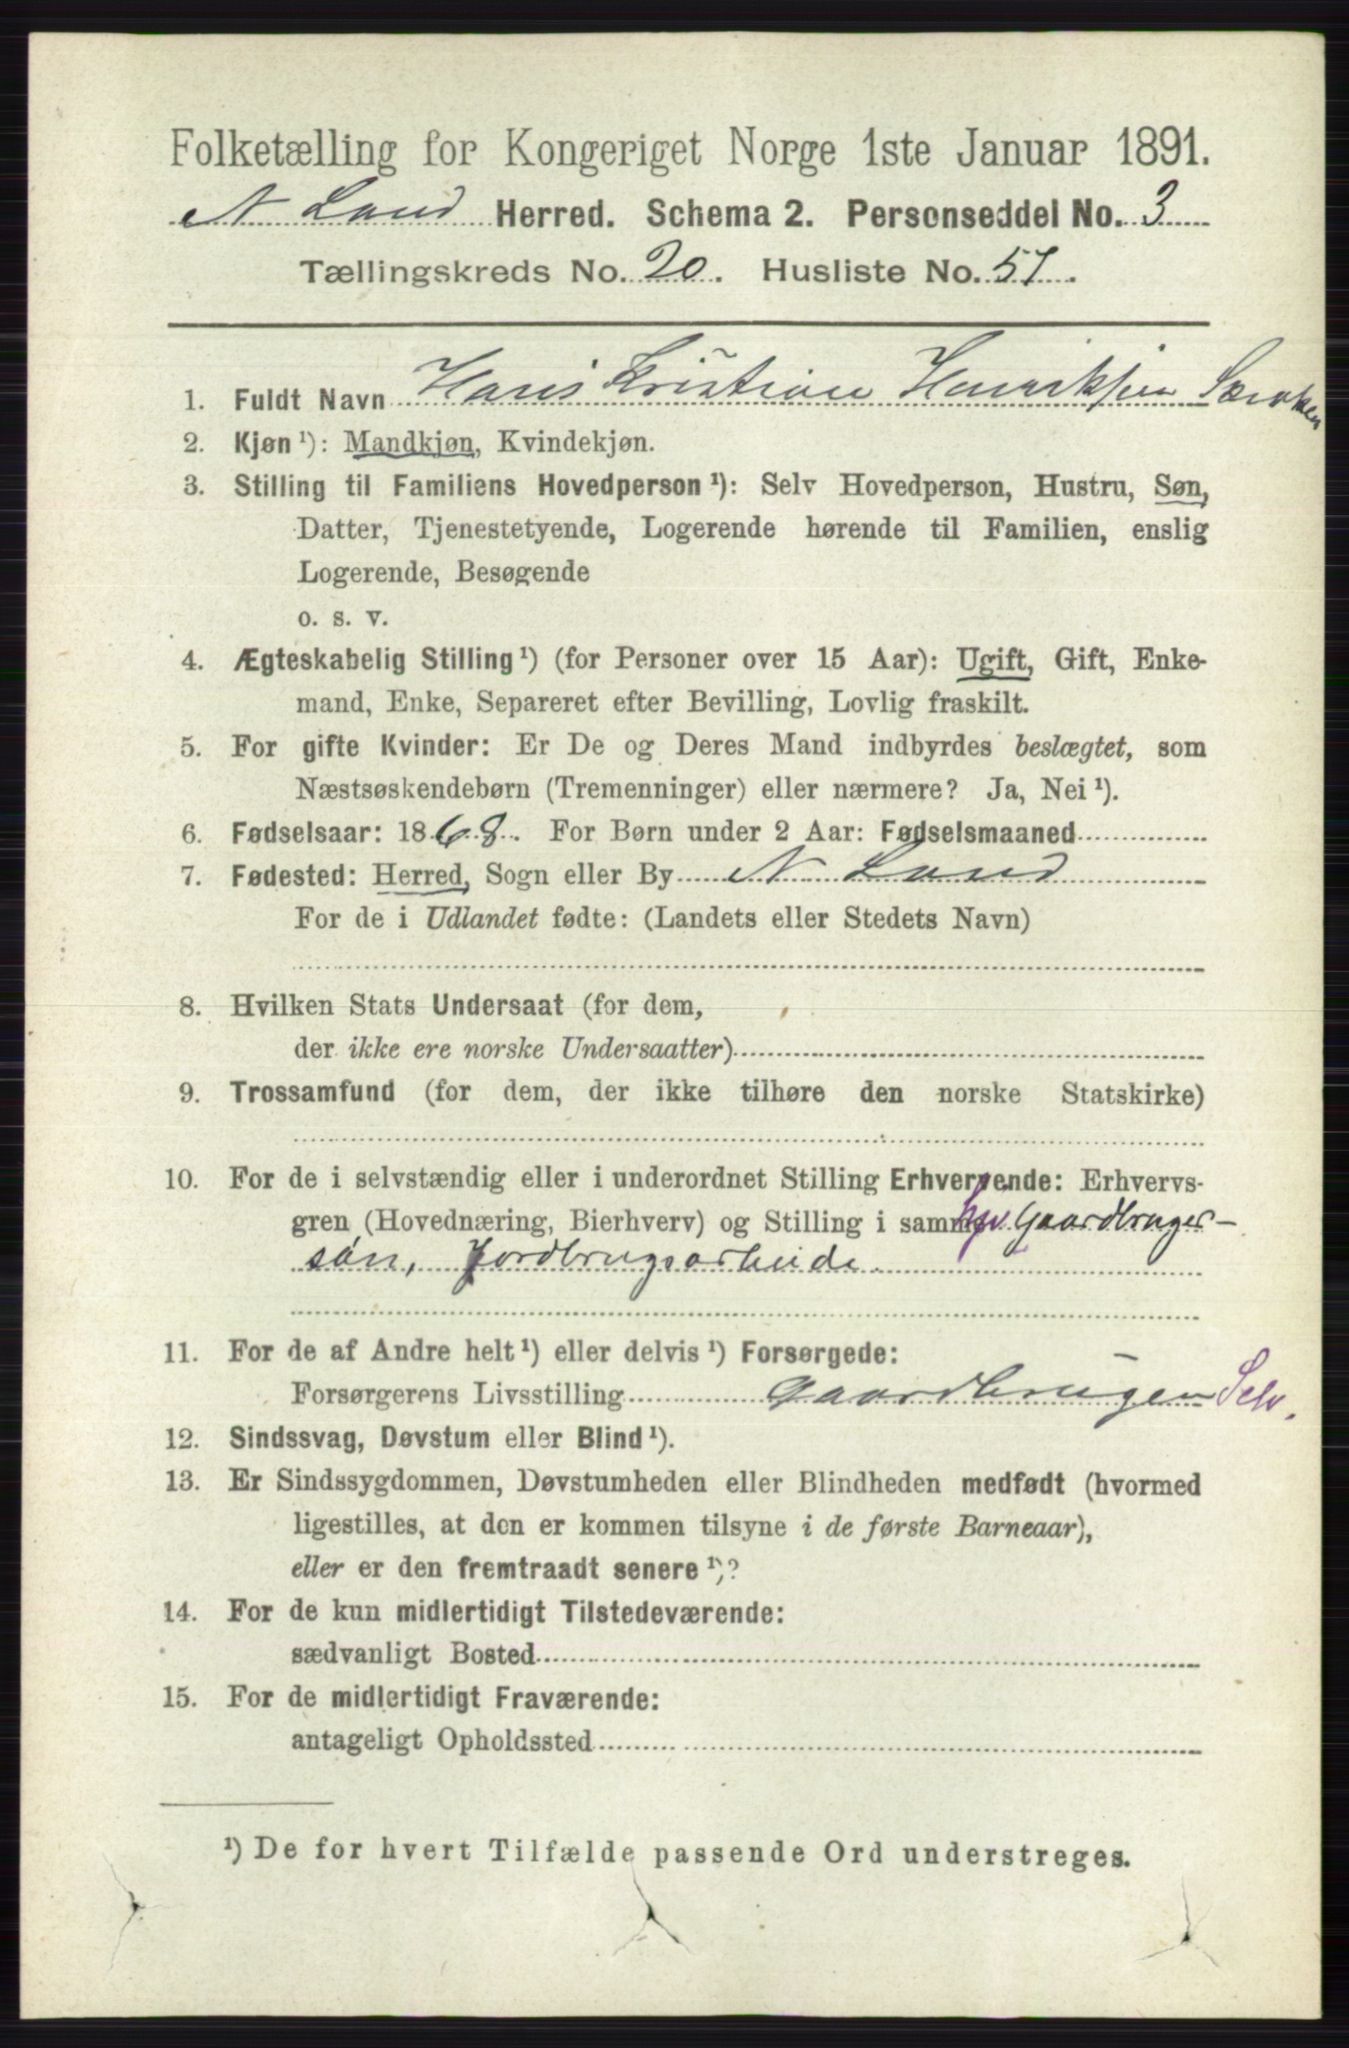 Folketælling for Kongeriget Norge 1ste Januar 1891.
N Land Herred. Schema 2. Personseddel No. 3
Tællingskreds No. 20. Husliste No. 57.
1. Fuldt Navn Hans Kristian Henriksen
2. Kjøn ¹): Mandkjøn, Kvindekjøn.
3. Stilling til Familiens Hovedperson ¹): Selv Hovedperson, Hustru, Søn,
Datter, Tjenestetyende, Logerende hørende til Familien, enslig
Logerende, Besøgende
o. s. v.
4. Ægteskabelig Stilling ¹) (for Personer over 15 Aar): Ugift, Gift, Enke-
mand, Enke, Separeret efter Bevilling, Lovlig fraskilt.
5. For gifte Kvinder: Er De og Deres Mand indbyrdes beslægtet, som
Næstsøskendebørn (Tremenninger) eller nærmere? Ja, Nei ¹).
6. Fødselsaar: 1868. For Børn under 2 Aar: Fødselsmaaned
7. Fødested: Herred, Sogn eller By N Land
For de i Udlandet fødte: (Landets eller Stedets Navn)
8. Hvilken Stats Undersaat (for dem,
der ikke ere norske Undersaatter)
9. Trossamfund (for dem, der ikke tilhøre den norske Statskirke)
10. For de i selvstændig eller i underordnet Stilling Erhvervende: Erhvervs-
gren (Hovednæring, Bierhverv) og Stilling i samme Gaardbruger-
søn, Jordbrugsarbeide.
11. For de af Andre helt ¹) eller delvis ¹) Forsørgede:
Forsørgerens Livsstilling Gaardbrugen Selv.
12. Sindssvag, Døvstum eller Blind ¹).
13. Er Sindssygdommen, Døvstumheden eller Blindheden medfødt (hvormed
ligestilles, at den er kommen tilsyne i de første Barneaar),
eller er den fremtraadt senere ¹)?
14. For de kun midlertidigt Tilstedeværende:
sædvanligt Bosted
15. For de midlertidigt Fraværende:
antageligt Opholdssted
¹) De for hvert Tilfælde passende Ord understreges.